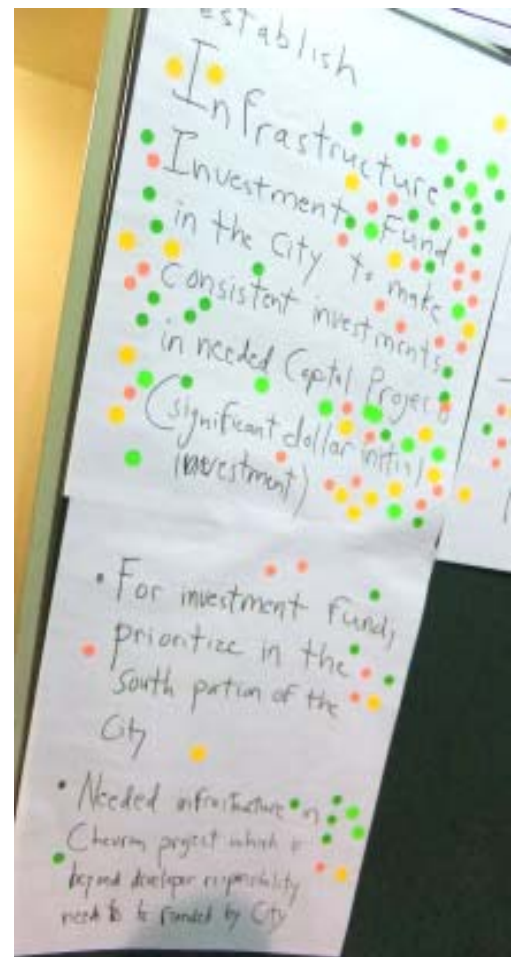 establish
Infrastructure
Investment Fund
in the City to make
consistent investments
in needed Captal Projects
(significant dollar initial
investment)
• For investment fund;
prioritize in the
South portion of the
City
• Needed infrastructure on
Chevron project which is
beyond developer responsibility
need to be funded by City